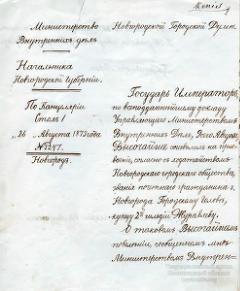 Копія
Министерство
Внутреннихъ дѣлъ
Начальника
Новгородской Губерніи.
По Канцеляріи
Стола 1
26 Августа 1873 года
№ 3247.
Новгородъ.
Новгородской Городской Думѣ
Государь Императоръ,
по всеподданнѣйшему докладу
Управляющаго Министерствомъ
Внутреннихъ Дѣлъ, Августа,
Высочайше соизволилъ на
своеніе, согласно съ ходатайствомъ
Новгородскаго городскаго общества,
званіе почетнаго гражданина г.
Новгорода Городскому Головѣ,
купцу 2й гильдіи Журавлеву.
О таковомъ Высочайшемъ
повелѣніи, сообщенномъ мнѣ
Министерствомъ Внутрен=